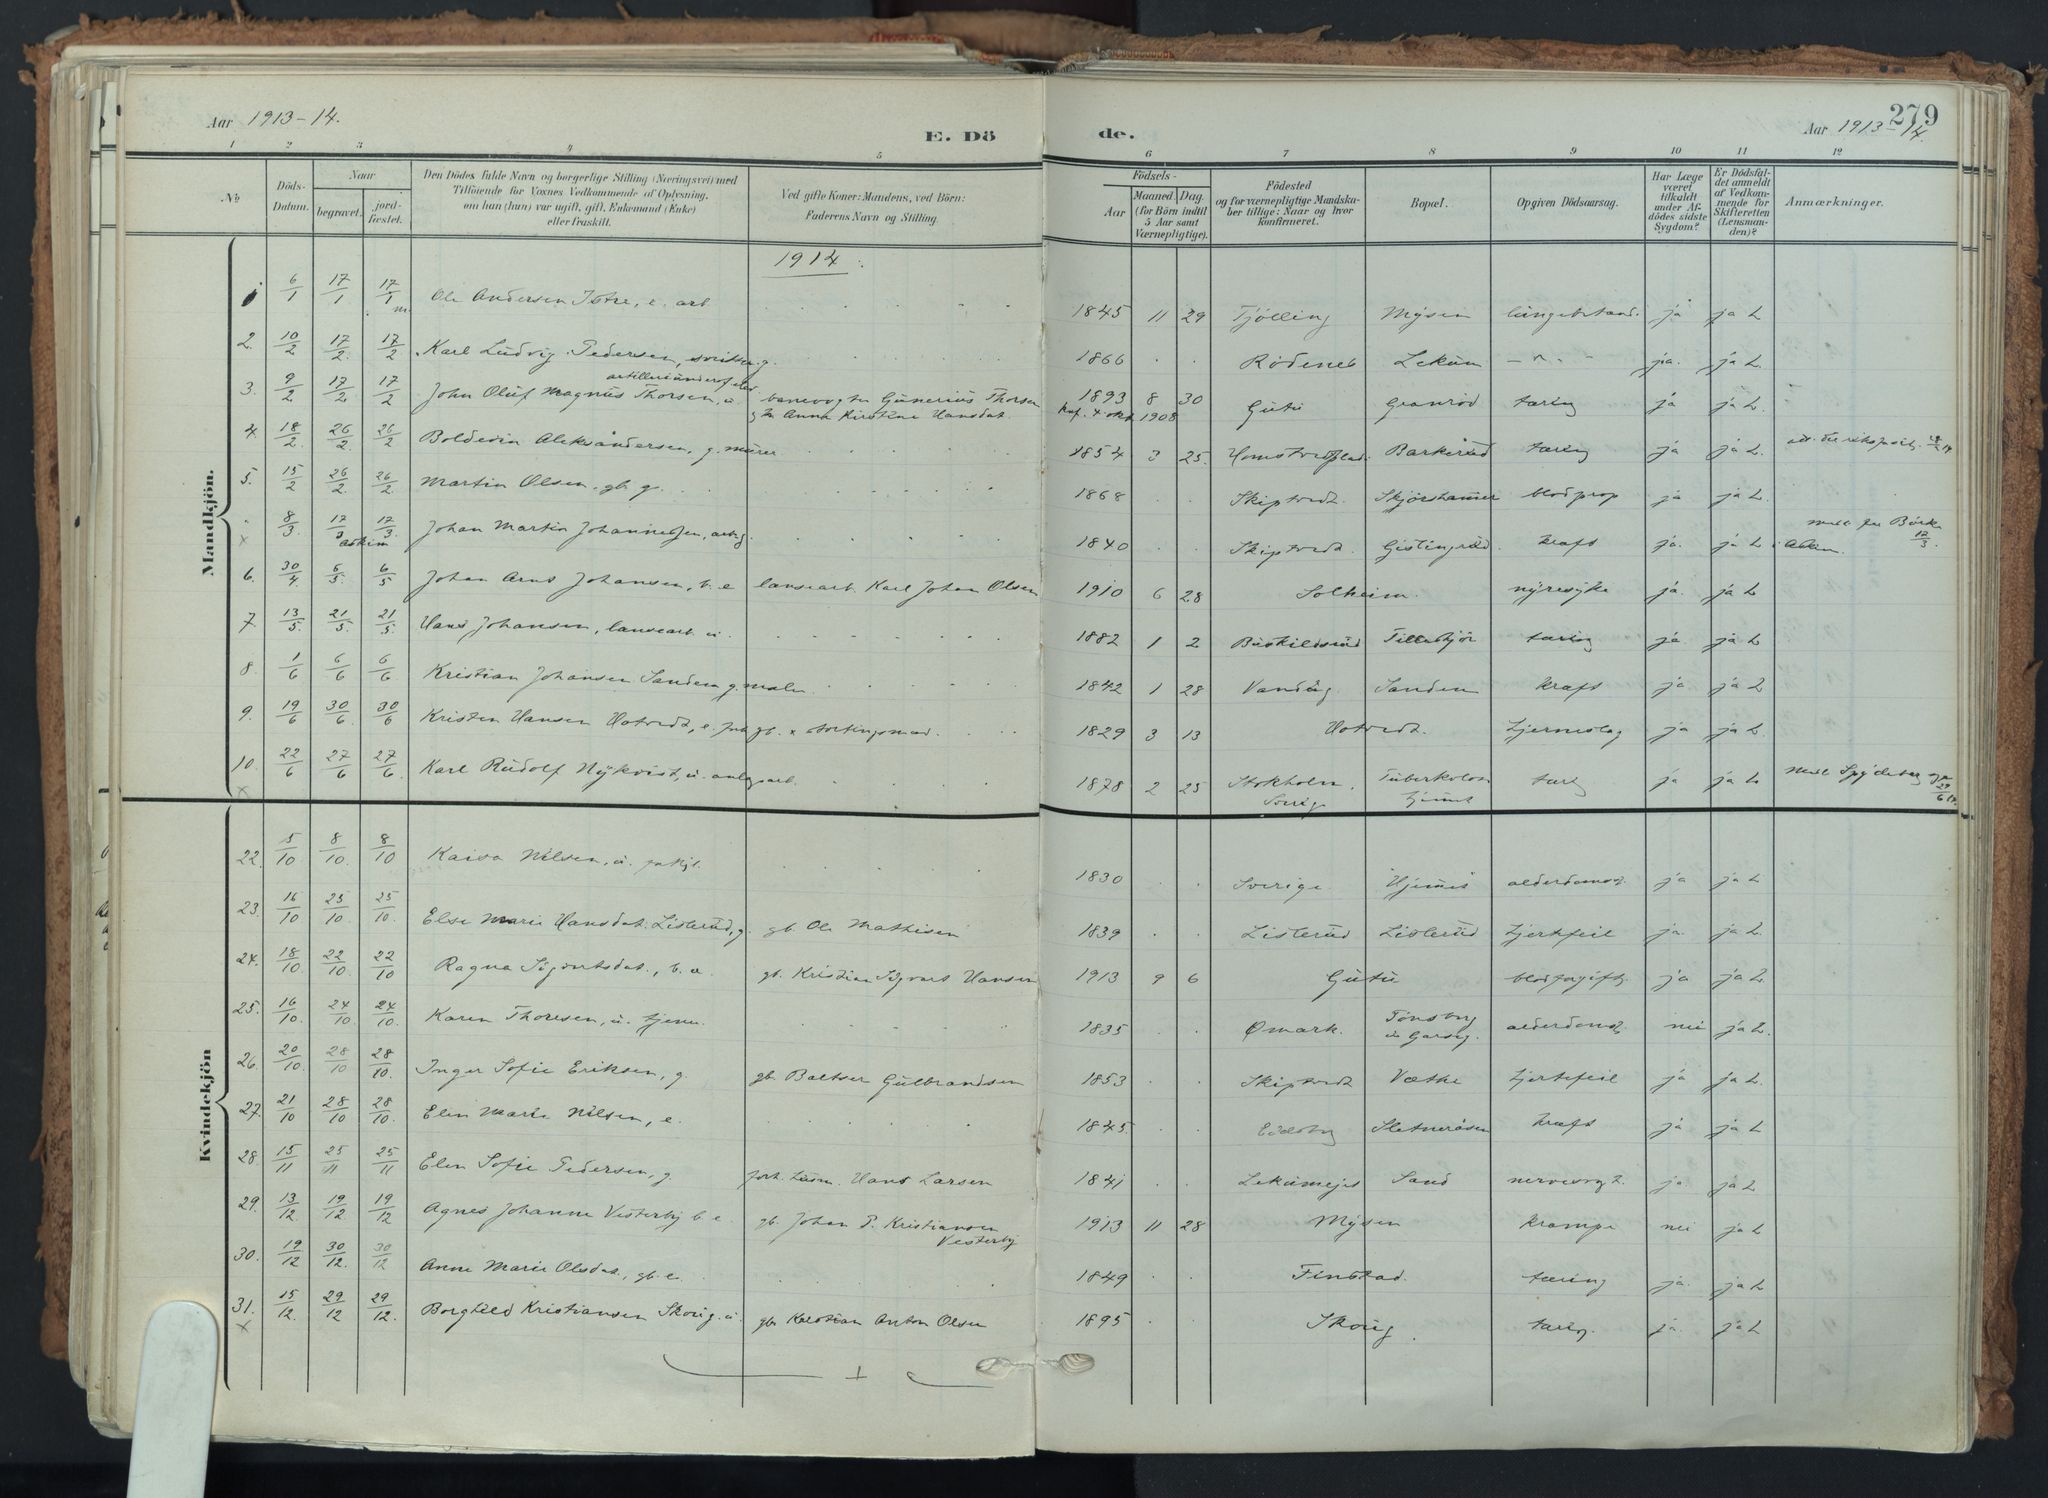 Aar 1913-14. E. Dö de. Aar 1913-14. 279
1 2 3 4 5 6 7 8 9 10 11 12
No
Döds-Datum.
Naar
begravet.
jord-fæstet.
Den Dödes fulde Navn og borgerlige Stilling (Næringsvei) med
Tilföiende for Voxnes Vedkommende af Oplysning,
om han (hun) var ugift, gift, Enkemand (Enke)
eller fraskilt.
Ved gifte Koner: Mandens, ved Börn:
Faderens Navn og Stilling.
Födsels-
Aar
Maaned. Dag.
(for Börn indtil
5 Aar samt
Værnepligtige).
Födested
og for værnepligtige Mandska-
ber tillige: Naar og hvor
konfirmeret.
Bopæl.
Opgiven Dödsaarsag.
Har Læge
været
tilkaldt
under Af-
dödes sidste
Sygdom?
Er Dödsfal-
det anmeldt
af Vedkom-
mende for
Skifteretten
(Lensman-
den)?
Anmærkninger.
Mandkjön.
1914.
6/1 17/1 17/1 Ole Andersen, e. arb 1845 11 29 Tjölling Mysen ja ja L
2. 10/2 17/2. 17/2 Karl Ludvig Pedersen, g. 1866 Rödenes Lekum — " — ja. ja L
3. 9/2 17/2 17/2 John Oluf Magnus Thorsen, u. banevogter Gunerius Thorsen 1893 8 30 Gutu Granrød tæring ja ja L.
Anna Kirstine Hansdat. Knf. 4 okt 1908
4. 18/2. 26/2. 26/2 Boldevin Aleksandersen, g. murer 1854 3 25. tæring ja ja L.
5. 15/2 26/2. 26/2. Martin Olsen, gb. g. 1868 Skiptvedt. Skjørshammer blodprop ja ja L.
x 8/3 17/3 17/3. Johan Martin Johannessen, g 1840 Skiptvedt. kræft ja. ja L
Askim
6. 30/4 6/5. 6/5 Johan Arns Johansen, b. e lansearb. Karl Johan Olsen 1910 6 28 Solheim. nyresyke ja. ja L
7. 13/5. 21/5. 21/5. Hans Johansen, lansearb. u. 1882 1 2 tæring ja ja L.
8. 1/6 6/6 6/6 Kristian Johansen Sanden g. maler 1842 1 28 Sanden kræft ja ja L
9. 19/6 30/6. 30/6 Kristen Hansen Hotvedt, e. gb. x stortingsmand. 1829 3 13 Hotvedt. hjerneslag ja ja L.
10. x 22/6 27/6 27/6. Karl Rudolf Nykvist, u. anlegsarb. 1878 2 25 Stokholm, Sverige Tuberkulosehjemmet tæring ja ja L
Kvindekjön
22. 5/10 8/10. 8/10 Kaisa Nilsen, u. 1830 Sverige. Hjemmet alderdomssv. ja ja L
23. 16/10 25/10. 25/10. Else Marie Hansdat. Listerud, g. gb. Ole Mathisen 1839 Listerud Listerud hjertefeil ja. ja L.
24. 18/10 22/10. 22/10 Ragna Sigvartsdat., b. e. gb. Kristian Sigvart Hansen 1913 9 6 Gutu blodforgiftn. ja ja L.
25. 16/10. 24/10. 24/10. Karen Thoresen, u. tjener 1835 Ømark. Tønsberg alderdomss. nei ja L.
26. 20/10. 28/10 28/10. Inger Sofie Eriksen, g. gb. Baltser Gulbrandsen 1853 Skiptvedt Væthe hjertefeil ja ja L.
27. 21/10 28/10 28/10. Elen Marie Nilsen, e. 1845. Eidsberg Sletneråsen kræft ja ja L
28. 15/11 25/11 25/11 Elen Sofie Pedersen, g. forh. Husm. Hans Larsen 1841 Lekumejet Sand nervesygd. ja ja L
29. 13/12. 19/12 19/12 Agnes Johanne Vesterby b. e. gb. Johan P. Kristiansen Vesterby 1913 11 28 Mysen krampe nei ja L
30. 19/12 30/12. 30/12 Anne Marie Olsdat., gb. e. 1849 Finstad. tæring ja. ja L
31. x 15/12. 29/12 29/12. Borghild Kristiansen Skoug. u. gb. Kristian Anton Olsen 1895 Skoug. tæring. ja. ja L